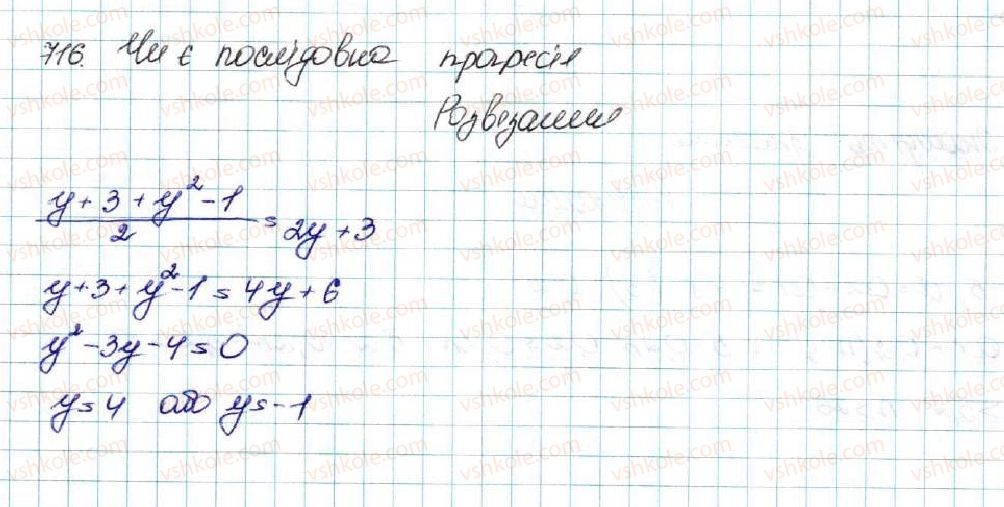 716. Чи є послідовна прогресія
Розвезання
y+3+y²-1/2 = 2y+3
y+3+y²-1=4y+6
y²-3y-4=0
y=4 або y=-1